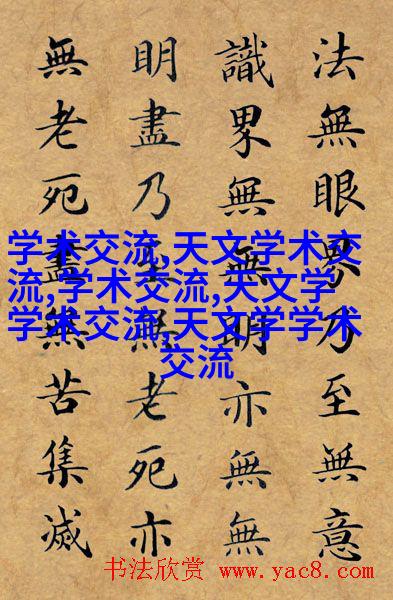 法無眼界乃至無意
識界無無明亦無無
明盡乃至無老死亦
無老死盡無苦集滅
学术交流,天文学术交
流,学术交流,天文学
学术交流,天文学学术
交流
书法欣赏 www.yac8.com